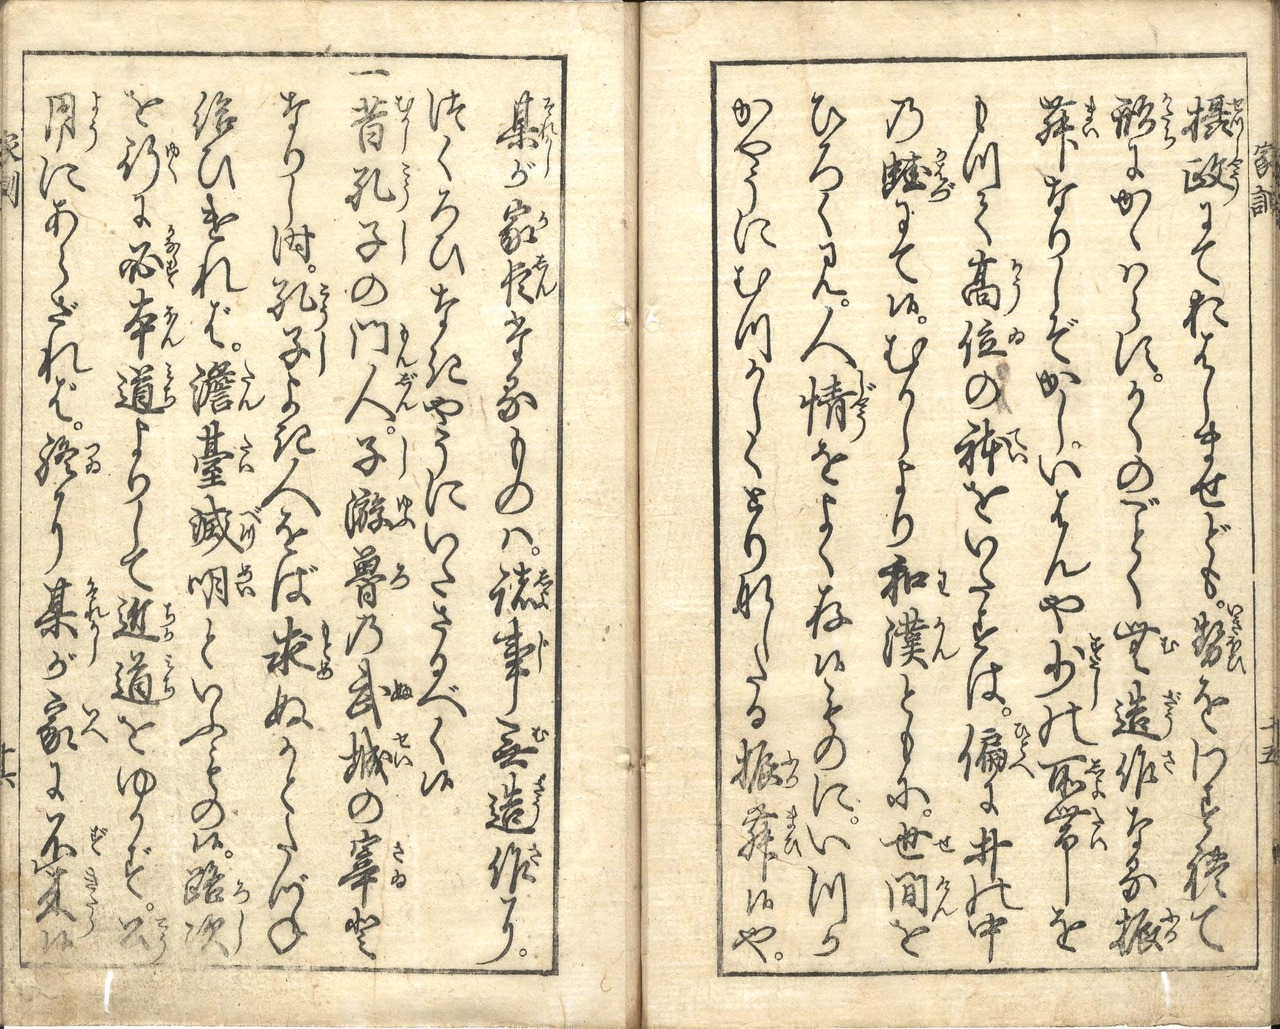 家訓
摂政にておはしませども。勢をわすれて
形にかゝはらず。かくのごとく無造作なる振
舞なりしぞかし。いはんや少の所帯を
もつて高位の袮をいたすは。偏に井の中
の蛙にて候。むかしより和漢ともに。世間を
ひろく見。人情をよく存候ものに。いつか
かやうにむつかしくとり成したる振舞候や。
十五
某が家臣たるものハ。諸事無造作にて。
つくろひなきやうにいたさるべく候
一昔孔子の門人。子游魯の武城の宰と
なりし時。孔子よき人をば求ぬるかとたづね
給ひければ。澹臺滅明といふもの候。路次
を行に必本道よりして近道をゆかず。公
用にあらざれば。終に某が家に不来候
家訓
十六